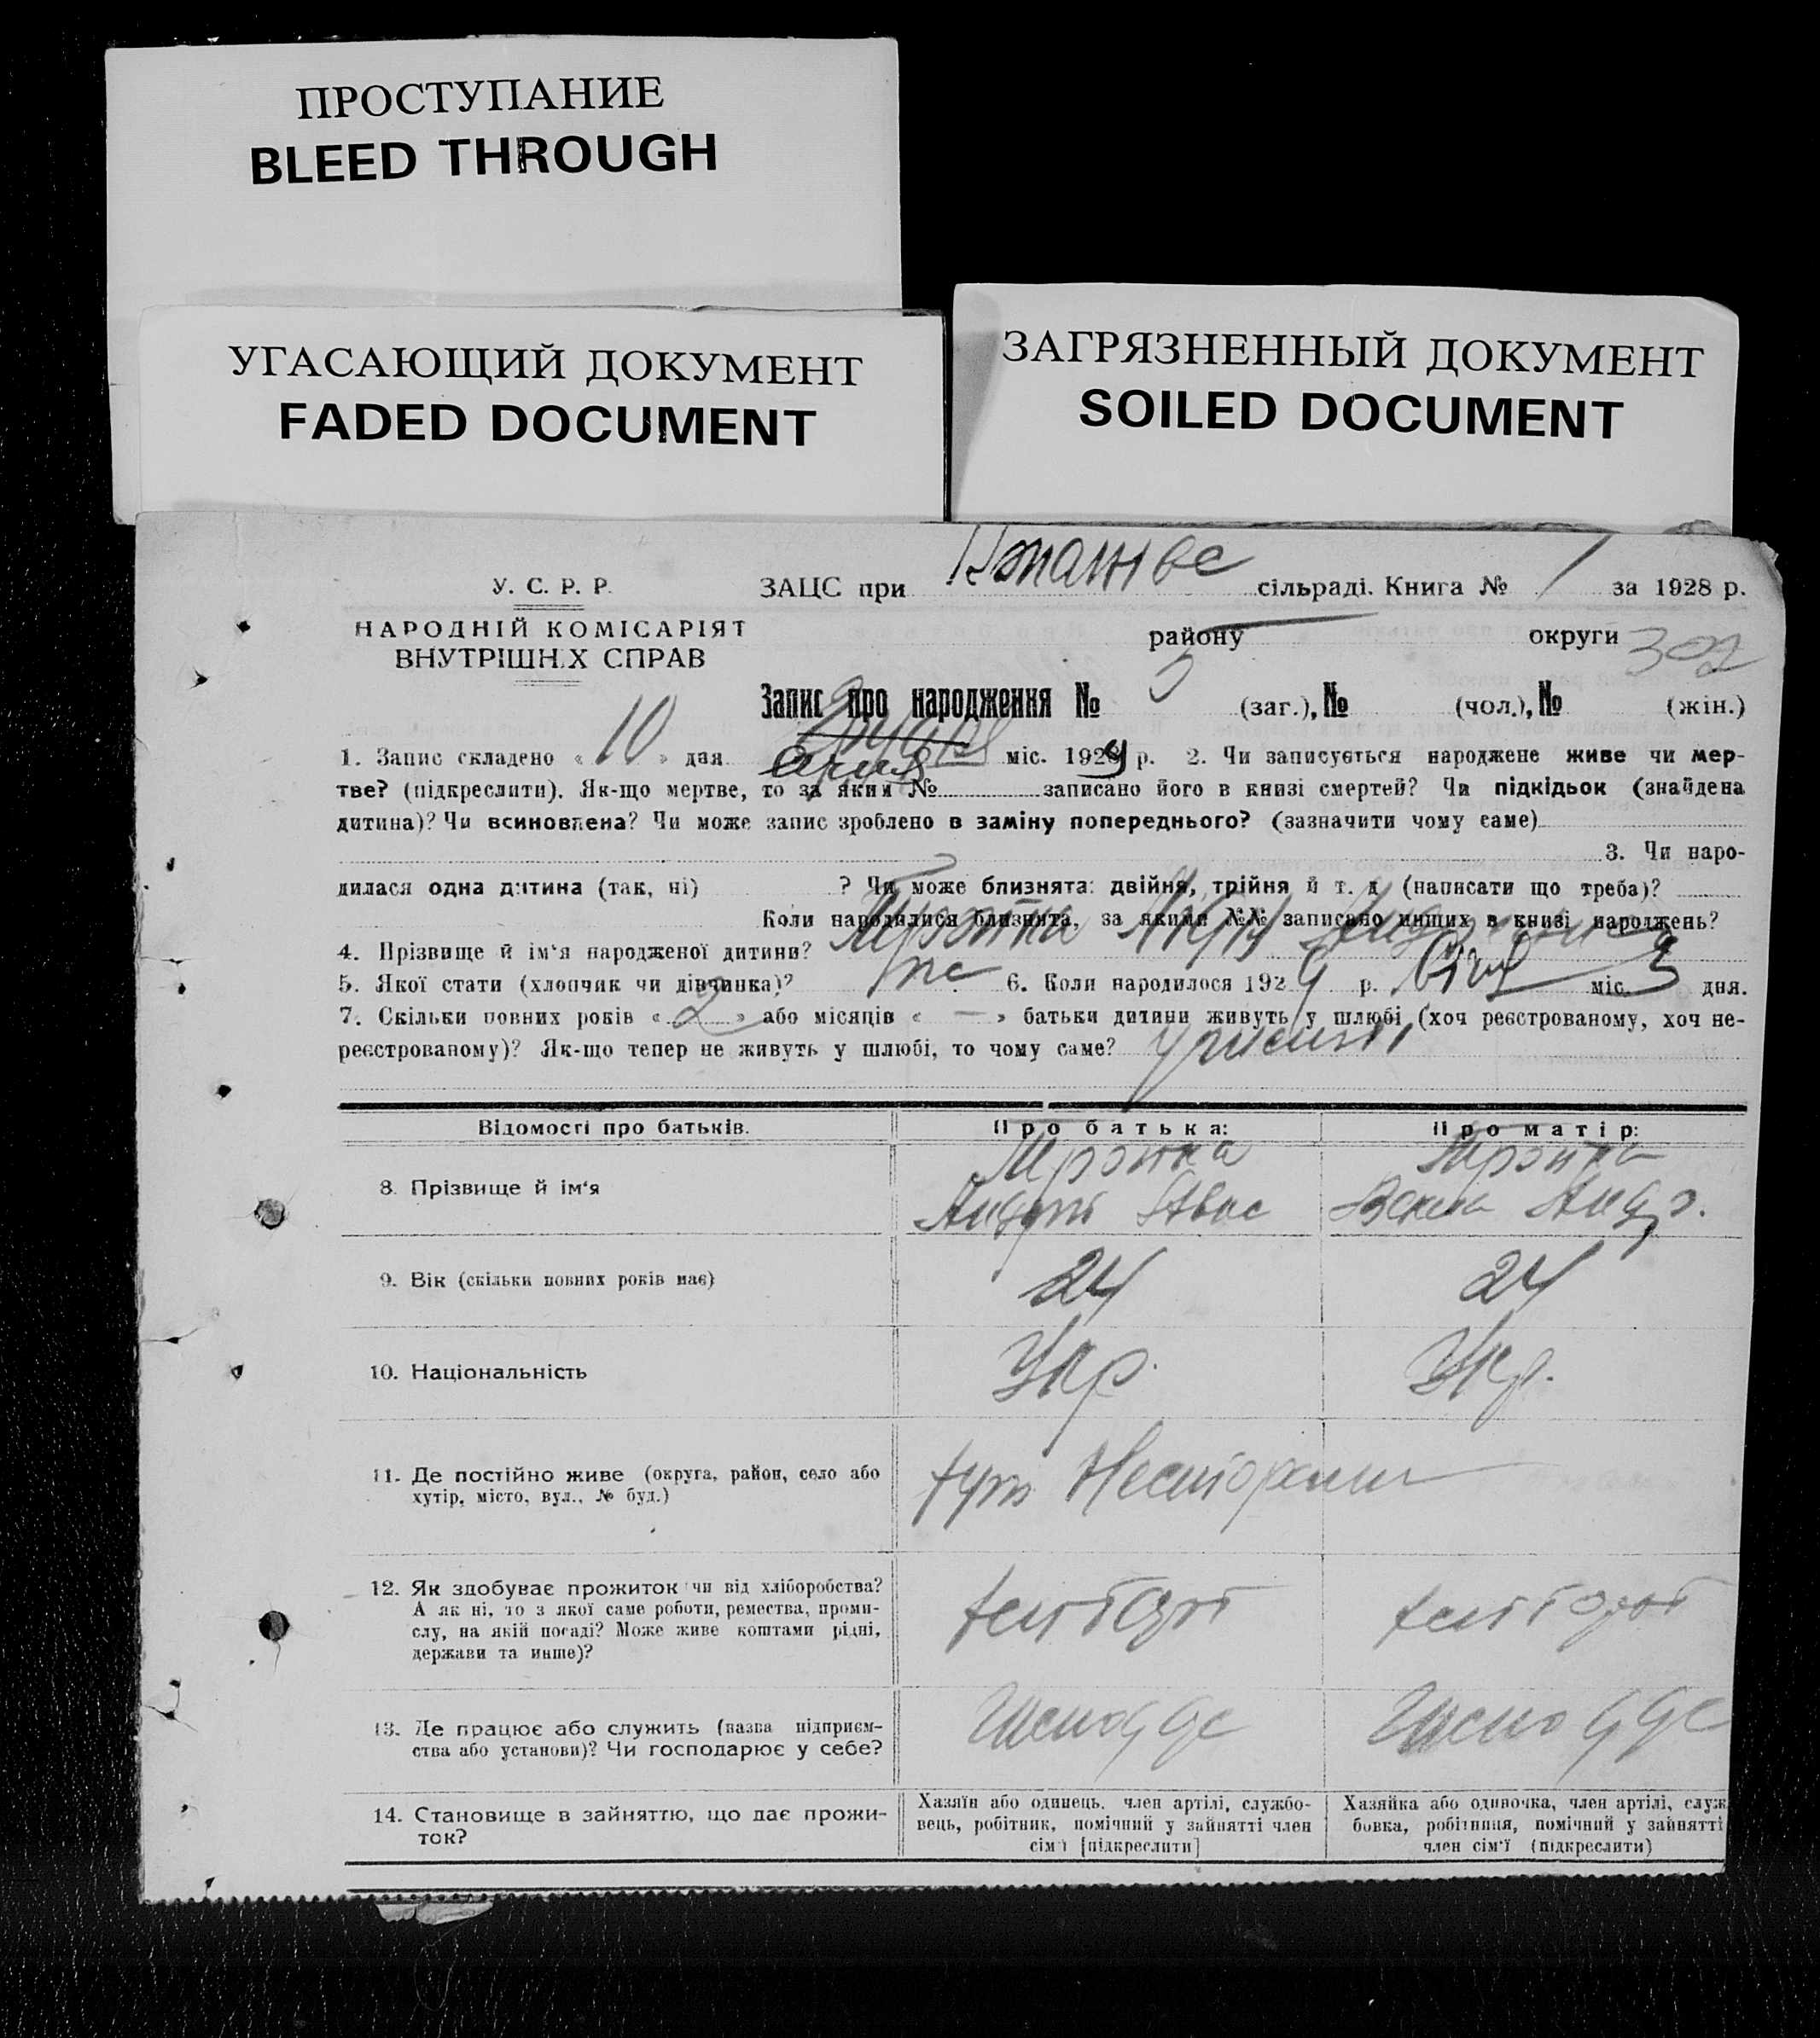 ПРОСТУПАНИЕ
BLEED THROUGH
УГАСАЮЩИЙ ДОКУМЕНТ
FADED DOCUMENT
ЗАГРЯЗНЕННЫЙ ДОКУМЕНТ
SOILED DOCUMENT
У. С. Р. Р.
НАРОДНІЙ КОМІСАРІЯТ
ВНУТРІШНІХ СПРАВ
ЗАЦС при сільраді. Книга № 1 за 1928 р.
району округи 302
Запис про народження № 5 (заг.), № (чол.), № (жін.)
1. Запис складено « 10 » дня січня міс. 1929 р. 2. Чи записується народжене живе чи мер-
тве? (підкреслити). Як-що мертве, то за яким № записано його в книзі смертей? Чи підкідьок (знайдена
дитина)? Чи всиновлена? Чи може запис зроблено в заміну попереднього? (зазначити чому саме)
3. Чи наро-
дилася одна дитина (так, ні) ? Чи може близнята: двійня, трійня й т. д (написати що треба)?
Коли народилися близнята, за якими №№ записано инших в книзі народжень?
4. Прізвище й ім'я народженої дитини?
5. Якої стати (хлопчик чи дівчинка)? 6. Коли народилося 1929 р. січня міс. 3 дня.
7. Скільки повних років « 2 » або місяців « — » батьки дитини живуть у шлюбі (хоч реєстрованому, хоч не-
реєстрованому)? Як-що тепер не живуть у шлюбі, то чому саме?
Відомості про батьків. Про батька: Про матір:
8. Прізвище й ім'я
9. Вік (скільки повних років має) 24 24
10. Національність Укр. Укр.
11. Де постійно живе (округа, район, село або
хутір, місто, вул., № буд.)
тут
12. Як здобуває прожиток чи від хліборобства?
А як ні, то з якої саме роботи, ремества, проми-
слу, на якій посаді? Може живе коштами рідні,
держави та инше)?
13. Де працює або служить (назва підприєм-
ства або установи)? Чи господарює у себе?
14. Становище в зайняттю, що дає прожи-
ток?
Хазяїн або одинець, член артілі, службо-
вець, робітник, помічний у зайнятті член
сім'ї [підкреслити]
Хазяйка або одиночка, член артілі, служ
бовка, робітниця, помічний у зайнятті
член сім'ї (підкреслити)